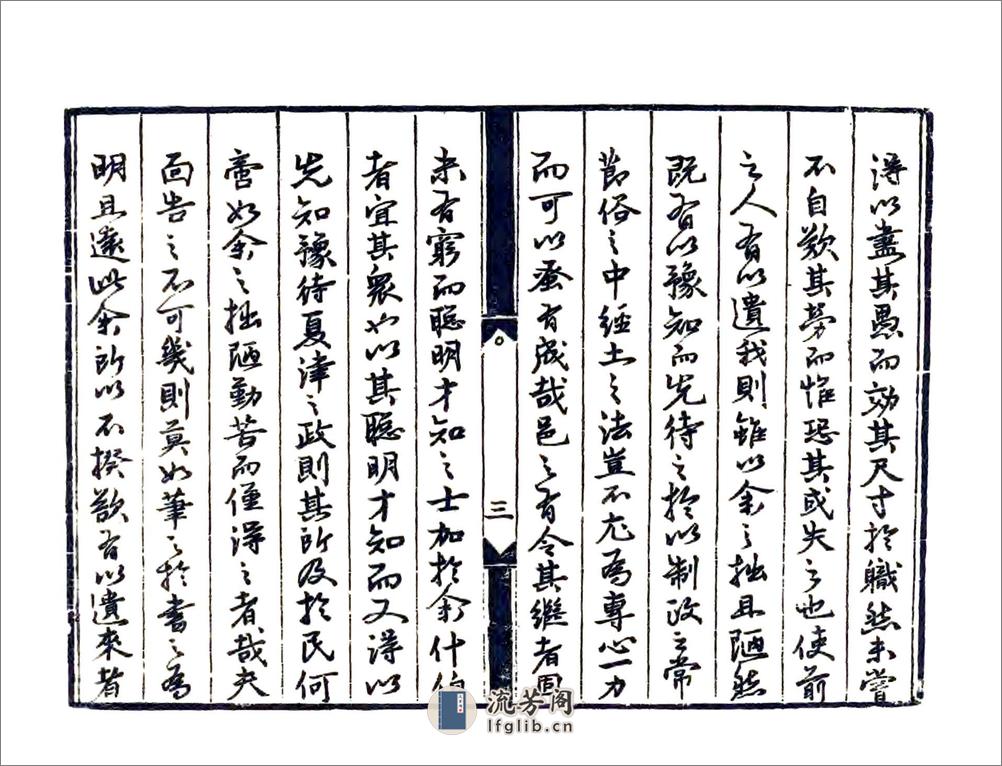 得以盡其愚而效其尺寸於職然未嘗
不自歎其勞而惟恐其或失之也使前
之人有以遺我則雖以余之拙且陋然
既有以豫知而先待之於以制改之常
節俗之中經土之法豈不尤為專心一力
而可以蚤有成哉邑之有令其繼者固
未有窮而聰明才知之士加於余什伯
者宜其衆也以其聰明才知而又得以
先知豫待夏津之政則其所及於民何
啻如余之拙陋勤苦而僅得之者哉夫
面告之不可幾則莫如筆之於書之為
明且遠此余所以不揆欲有以遺來者
三
流芳阁
lfglib.cn